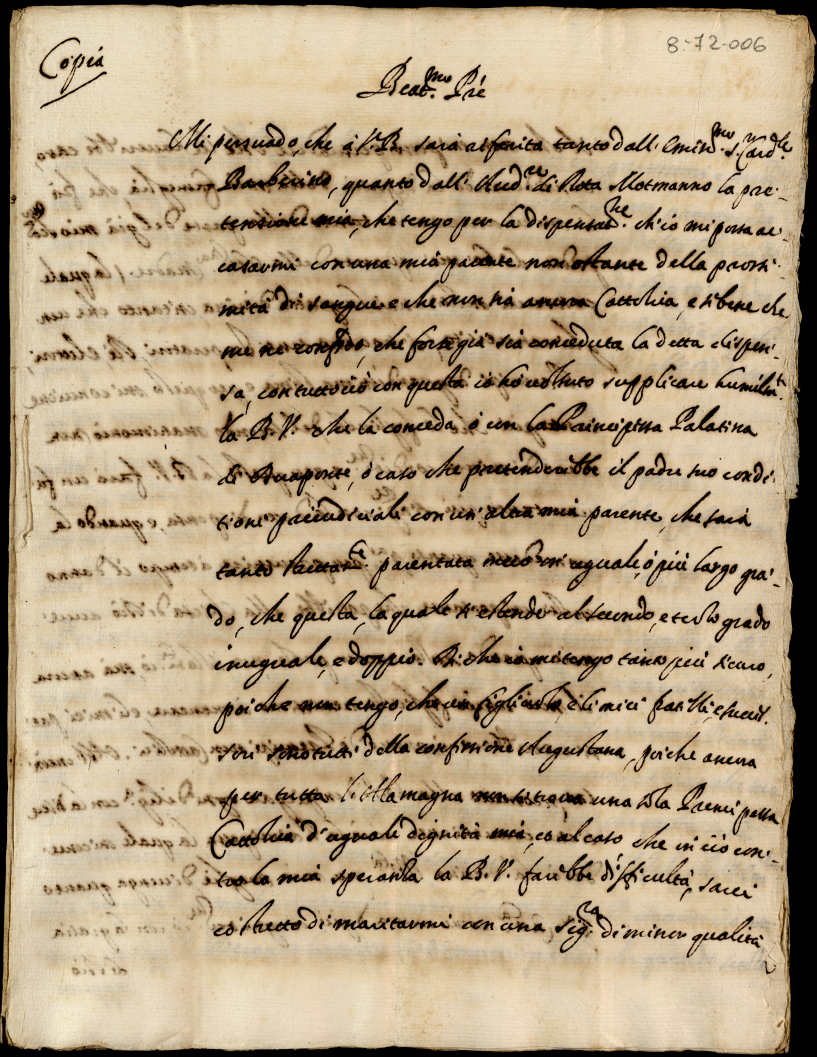 8-72-006
Copia
Beat.mo Pre
Mi persuado, che à V. B. sarà riferita tanto dall' Emin.mo s.r Card.le
Barberino, quanto dall' Aud.re di Rota Motmanno la pre-
tensione mia, che tengo per la dispensat.ne ch'io mi possa ac-
casarmi con una mia parente non ostante della prossi-
mità di sangue e che non sia ancora Cattolica, e sibene che
me ne confido, che forse già sia conceduta la detta dispen-
sa, con tutto ciò con questa io ho voluto supplicare humilm.te
la B. V. che la conceda ò con la Principessa Palatina
di Duaponte, ò caso che pretenderebbe il padre suo condi-
tioni preiudiciali con un' altra mia parente, che sarà
tanto parentata meco in uguale, ò più largo gra-
do, che questa, la quale si estende al secondo, e terzo grado
inuguale, e doppio. Si che io mi tengo tanto più sicuro,
poiche non tengo, che un figliuolo, e li miei fratelli, e succes-
sori sono tutti della confessione Augustana, poiche ancora
per tutta l'Allamagna non si trova una sola Prencipessa
Cattolica d'uguale dignità mia, et al caso che in ciò con-
tro la mia speranza la B. V. farebbe difficultà, sarei
costretto di maritarmi con una sig.ra di minor qualità